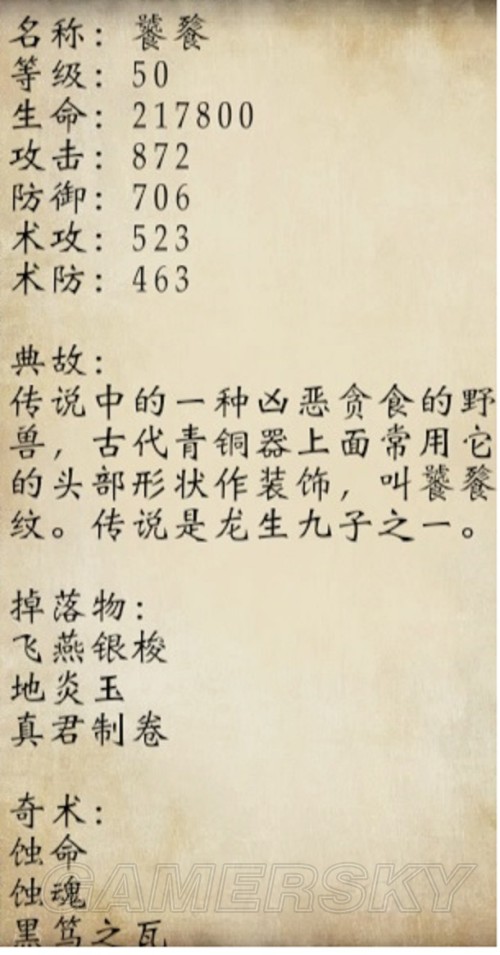 名称：饕餮
等级：50
生命：217800
攻击：872
防御：706
术攻：523
术防：463
典故：
传说中的一种凶恶贪食的野
兽，古代青铜器上面常用它
的头部形状作装饰，叫饕餮
纹。传说是龙生九子之一。
掉落物：
飞燕银梭
地炎玉
真君制卷
奇术：
蚀命
蚀魂
黑笃之瓦
GAMERSKY